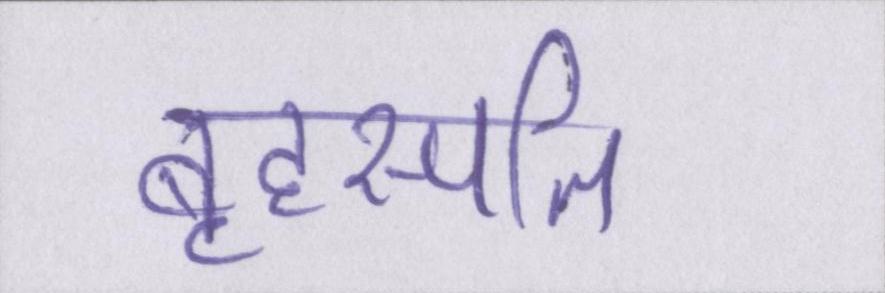 बृहस्पति